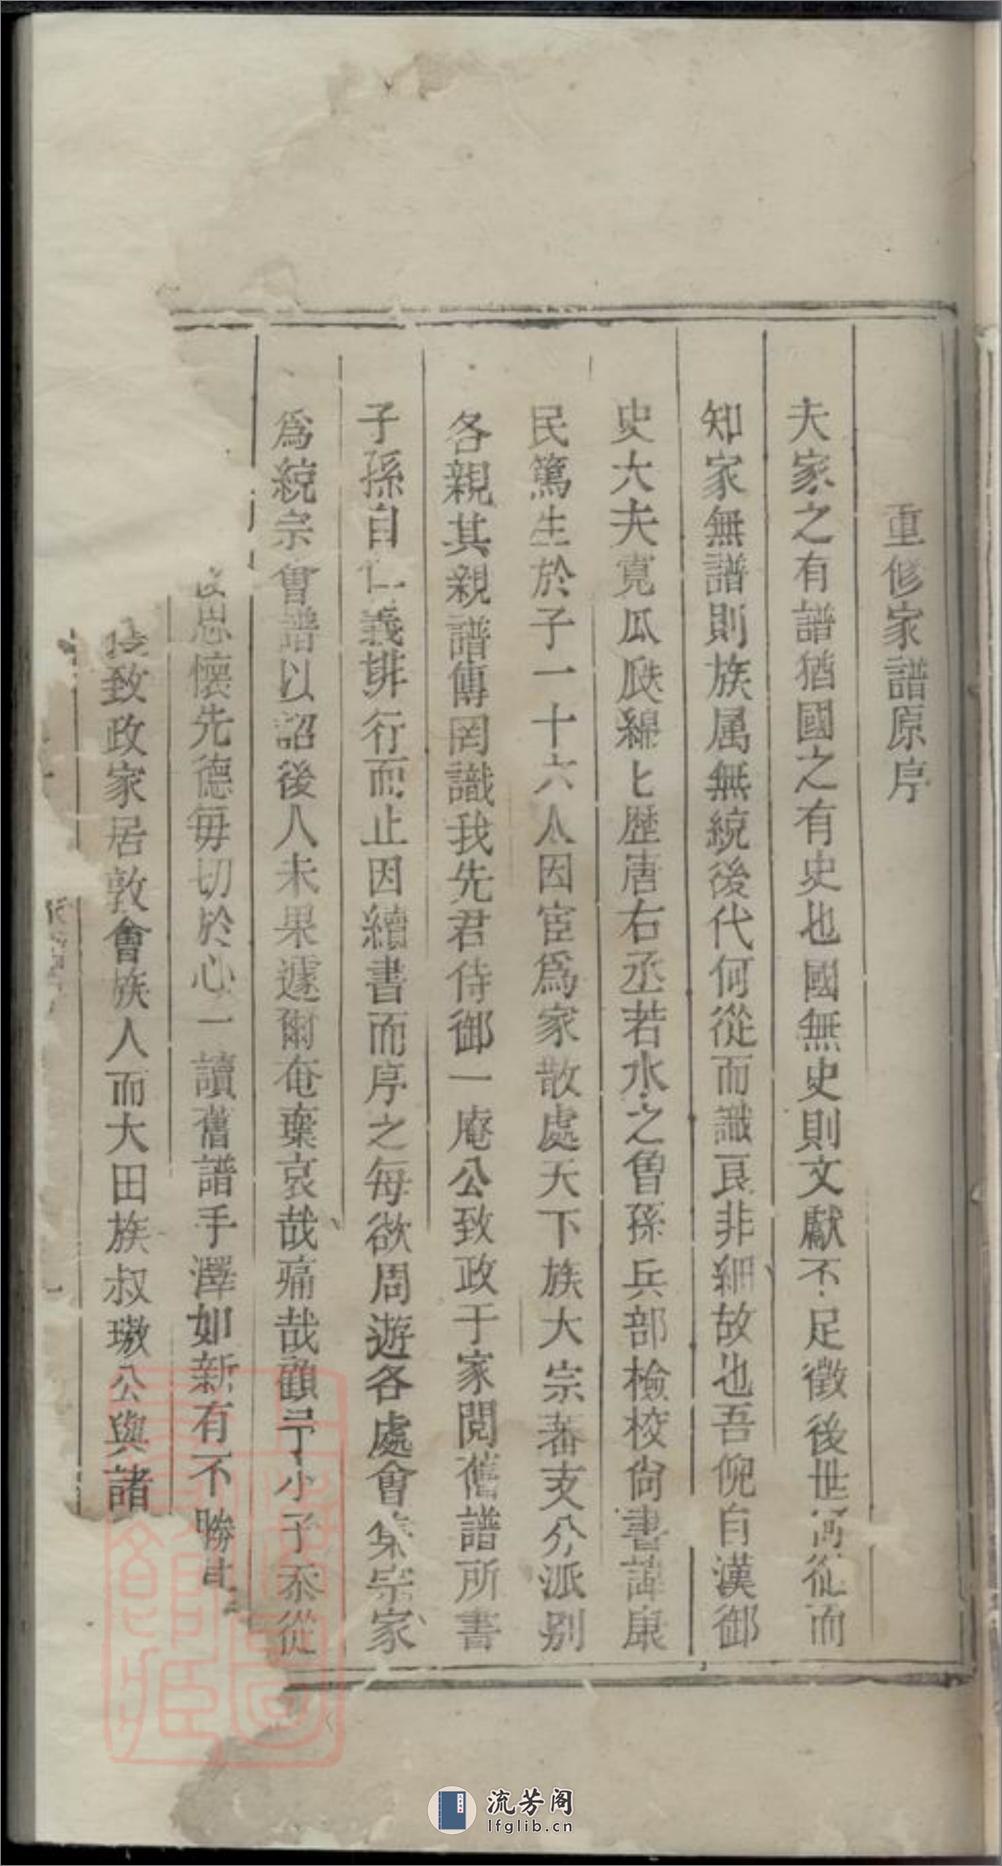 重修家譜原序
夫家之有譜猶國之有史也國無史則文獻不足徵後世何從而
知家無譜則族属無統後代何從而識良非細故也吾倪自漢御
史大夫寛瓜瓞綿匕歴唐右丞若水之曾孫兵部檢校尙書諱康
民篤生於子一十六人因宦爲家散處天下族大宗蕃支分派别
各親其親譜傳罔識我先君侍御一庵公致政于家閲舊譜所書
子孫自仁義排行而止因續書而序之每欲周遊各處會集宗家
爲統宗會譜以詔後人未果遽爾奄棄哀哉痛哉顧予小子忝從
思懷先德毎切於心一讀舊譜手澤如新有不勝
致政家居敦會族人而大田族叔璥公與諸
流芳阁
lfglib.cn